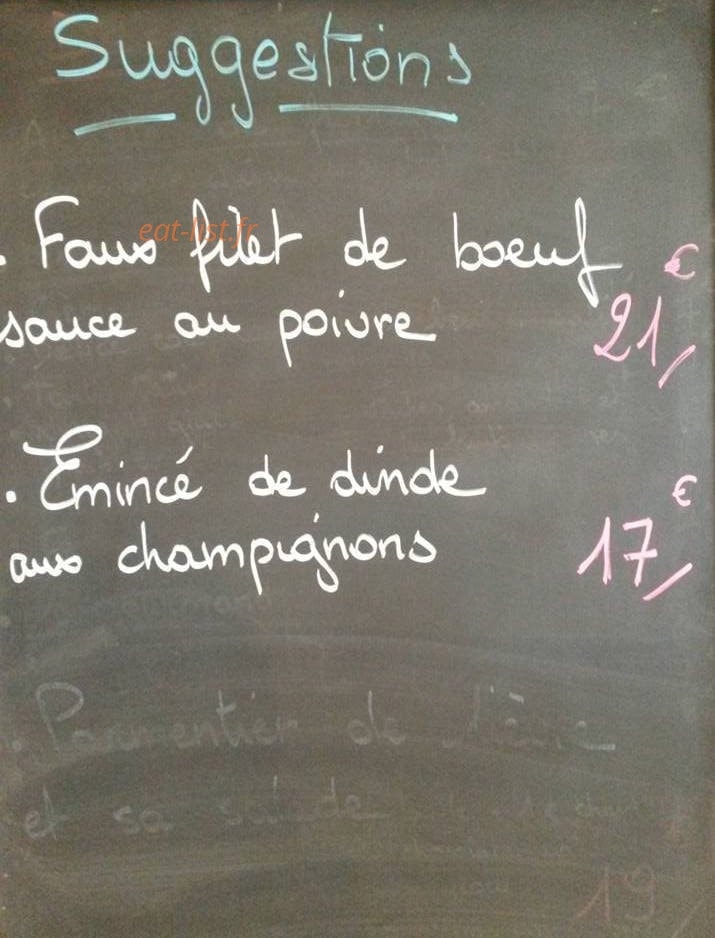 Suggestions
. Faux filet de boeuf €
sauce au poivre 21,
. Emincé de dinde €
aux champignons 17,
Parmentier de
et sa salade
19
eat-list.fr